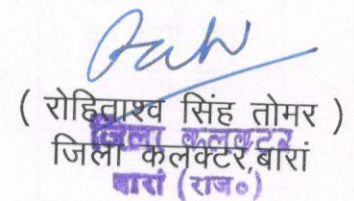 ( रोहिताश्व सिंह तोमर )
जिला कलक्टर
जिला कलक्टर,बारां
बारां (राज०)